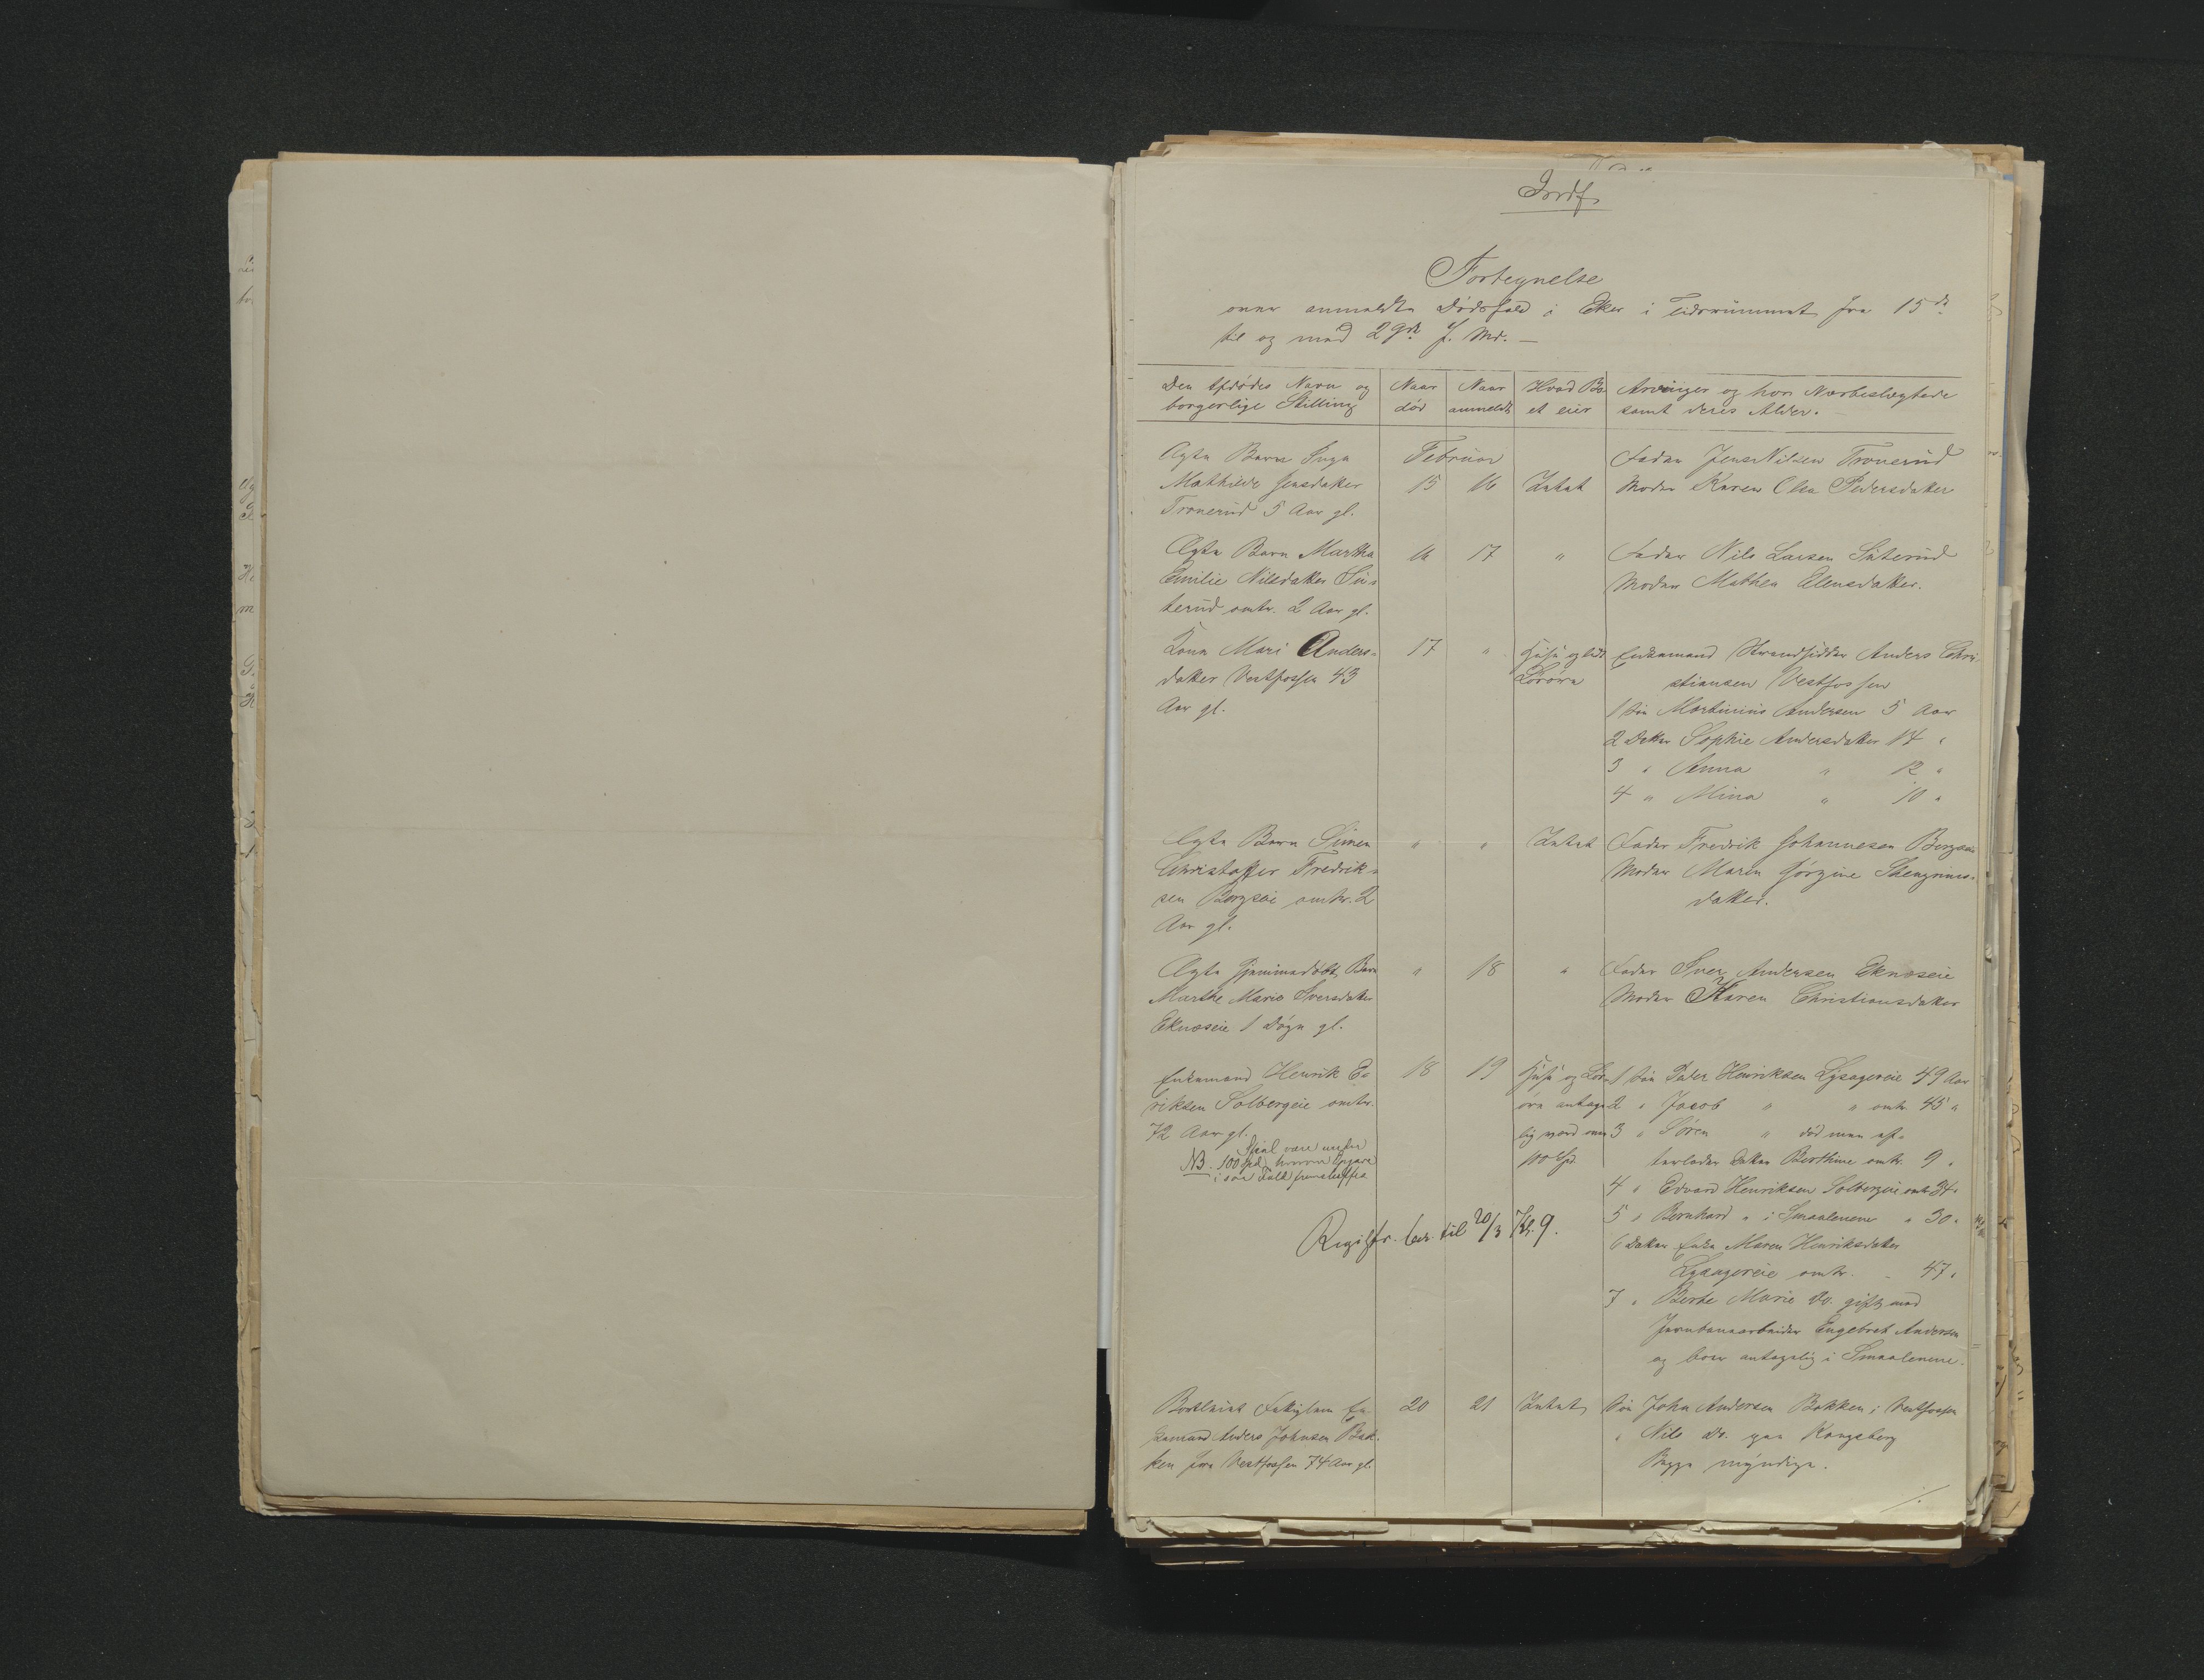 Indf.
Fortegnelse
over anmeldte Dødsfald i Eker i Tidsrummet fra 15de
til og med 29de f. Md. —
Den Afdødes Navn og borgerlige Stilling | Naar død | Naar anmeldt | Hvad Boet eier | Arvinger og hvor Nærbeslægtede samt deres Alder.
Ægte Barn Inga
Mathilde Jensdatter
Tronerud 5 Aar gl.
Februar
15 16 Intet
Fader Jens Nilsen Tronerud
Moder Karen Olea Pedersdatter
Ægte Barn Martha
Emilie Nilsdatter Su-
terud omtr. 2 Aar gl.
16 17 "
Fader Nils Larsen Suterud
Moder Mathea Olensdatter.
Kone Mari Anders-
datter Vestfossen 43
Aar gl.
17 "
Huus og lidt
Løsøre
Enkemand Strandsidder Anders Chri-
stiansen Vestfossen
1 Søn Martinius Andersen 5 Aar
2 Datter Sophie Andersdatter 14 "
3 " Anna " 12 "
4 " Mina " 10 "
Ægte Barn Simen
Christoffer Fredrik-
sen Bergseie omtr. 2
Aar gl.
" " Intet
Fader Fredrik Johannesen Bergseie
Moder Maren Jørgine
datter.
Ægte hjemmedøbt Barn
Marthe Marie Iversdatter
Eknæseie 1 Døgn gl.
" 18 "
Fader Iver Andersen Eknæseie
Moder Karen Christiansdatter
Enkemand Henrik E-
riksen Solbergeie omtr.
72 Aar gl.
Skal være
NB. 100 Spd. hvorom Opgave
i saa Fald fremskaffes
18 19
Huus og Løs-
øre antage-
lig værd om
100 Spd.
Registr. ber. til 20/3 Kl. 9.
1 Søn Peder Henriksen Lysagereie 49 Aar
2 " Jacob " " omtr. 45 "
3 " Søren " død men ef-
terlader Datter Berthine omtr. 9 "
4 " Edvard Henriksen Solbergeie omtr. 34 "
5 " Bernhard " i Smaalenene " 30 "
6 Datter Enke Maren Henriksdatter
Lysagereie omtr. " 47 "
7 " Berte Marie Do. gift med
Jernbanearbeider Engebret Andersen
og boer antagelig i Smaalenene.
Bortleiet Fattiglem En-
kemand Anders Johnsen Bak-
ken fra Vestfossen 74 Aar gl.
20 21 Intet
Søn John Andersen Bakken i Vestfossen
" Nils Do. paa Kongsberg
Begge myndige.